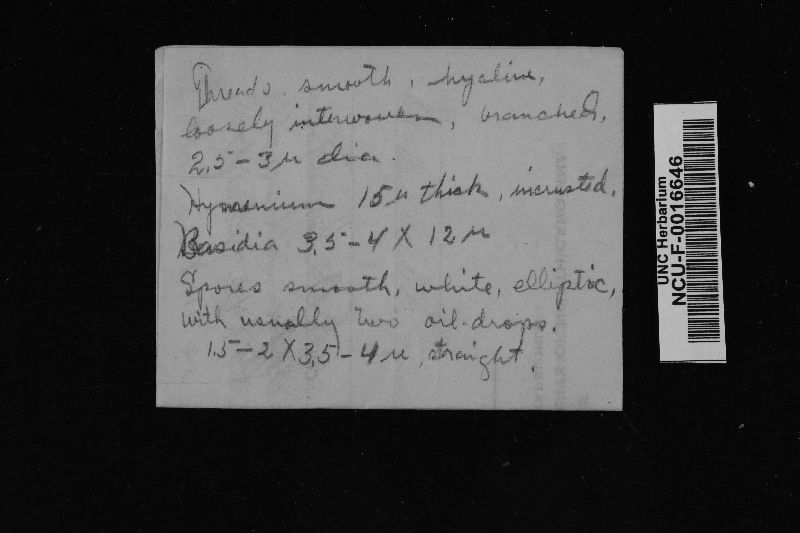 Threads smooth, hyaline,
loosely interwoven, branched,
2.5-3µ dia.
Hymenium 15µ thick, incrusted.
Basidia 3.5-4 X 12µ
Spores smooth, white, elliptic,
with usually two oil-drops.
1.5-2 X 3.5-4µ, straight.
UNC Herbarium
NCU-F-0016646